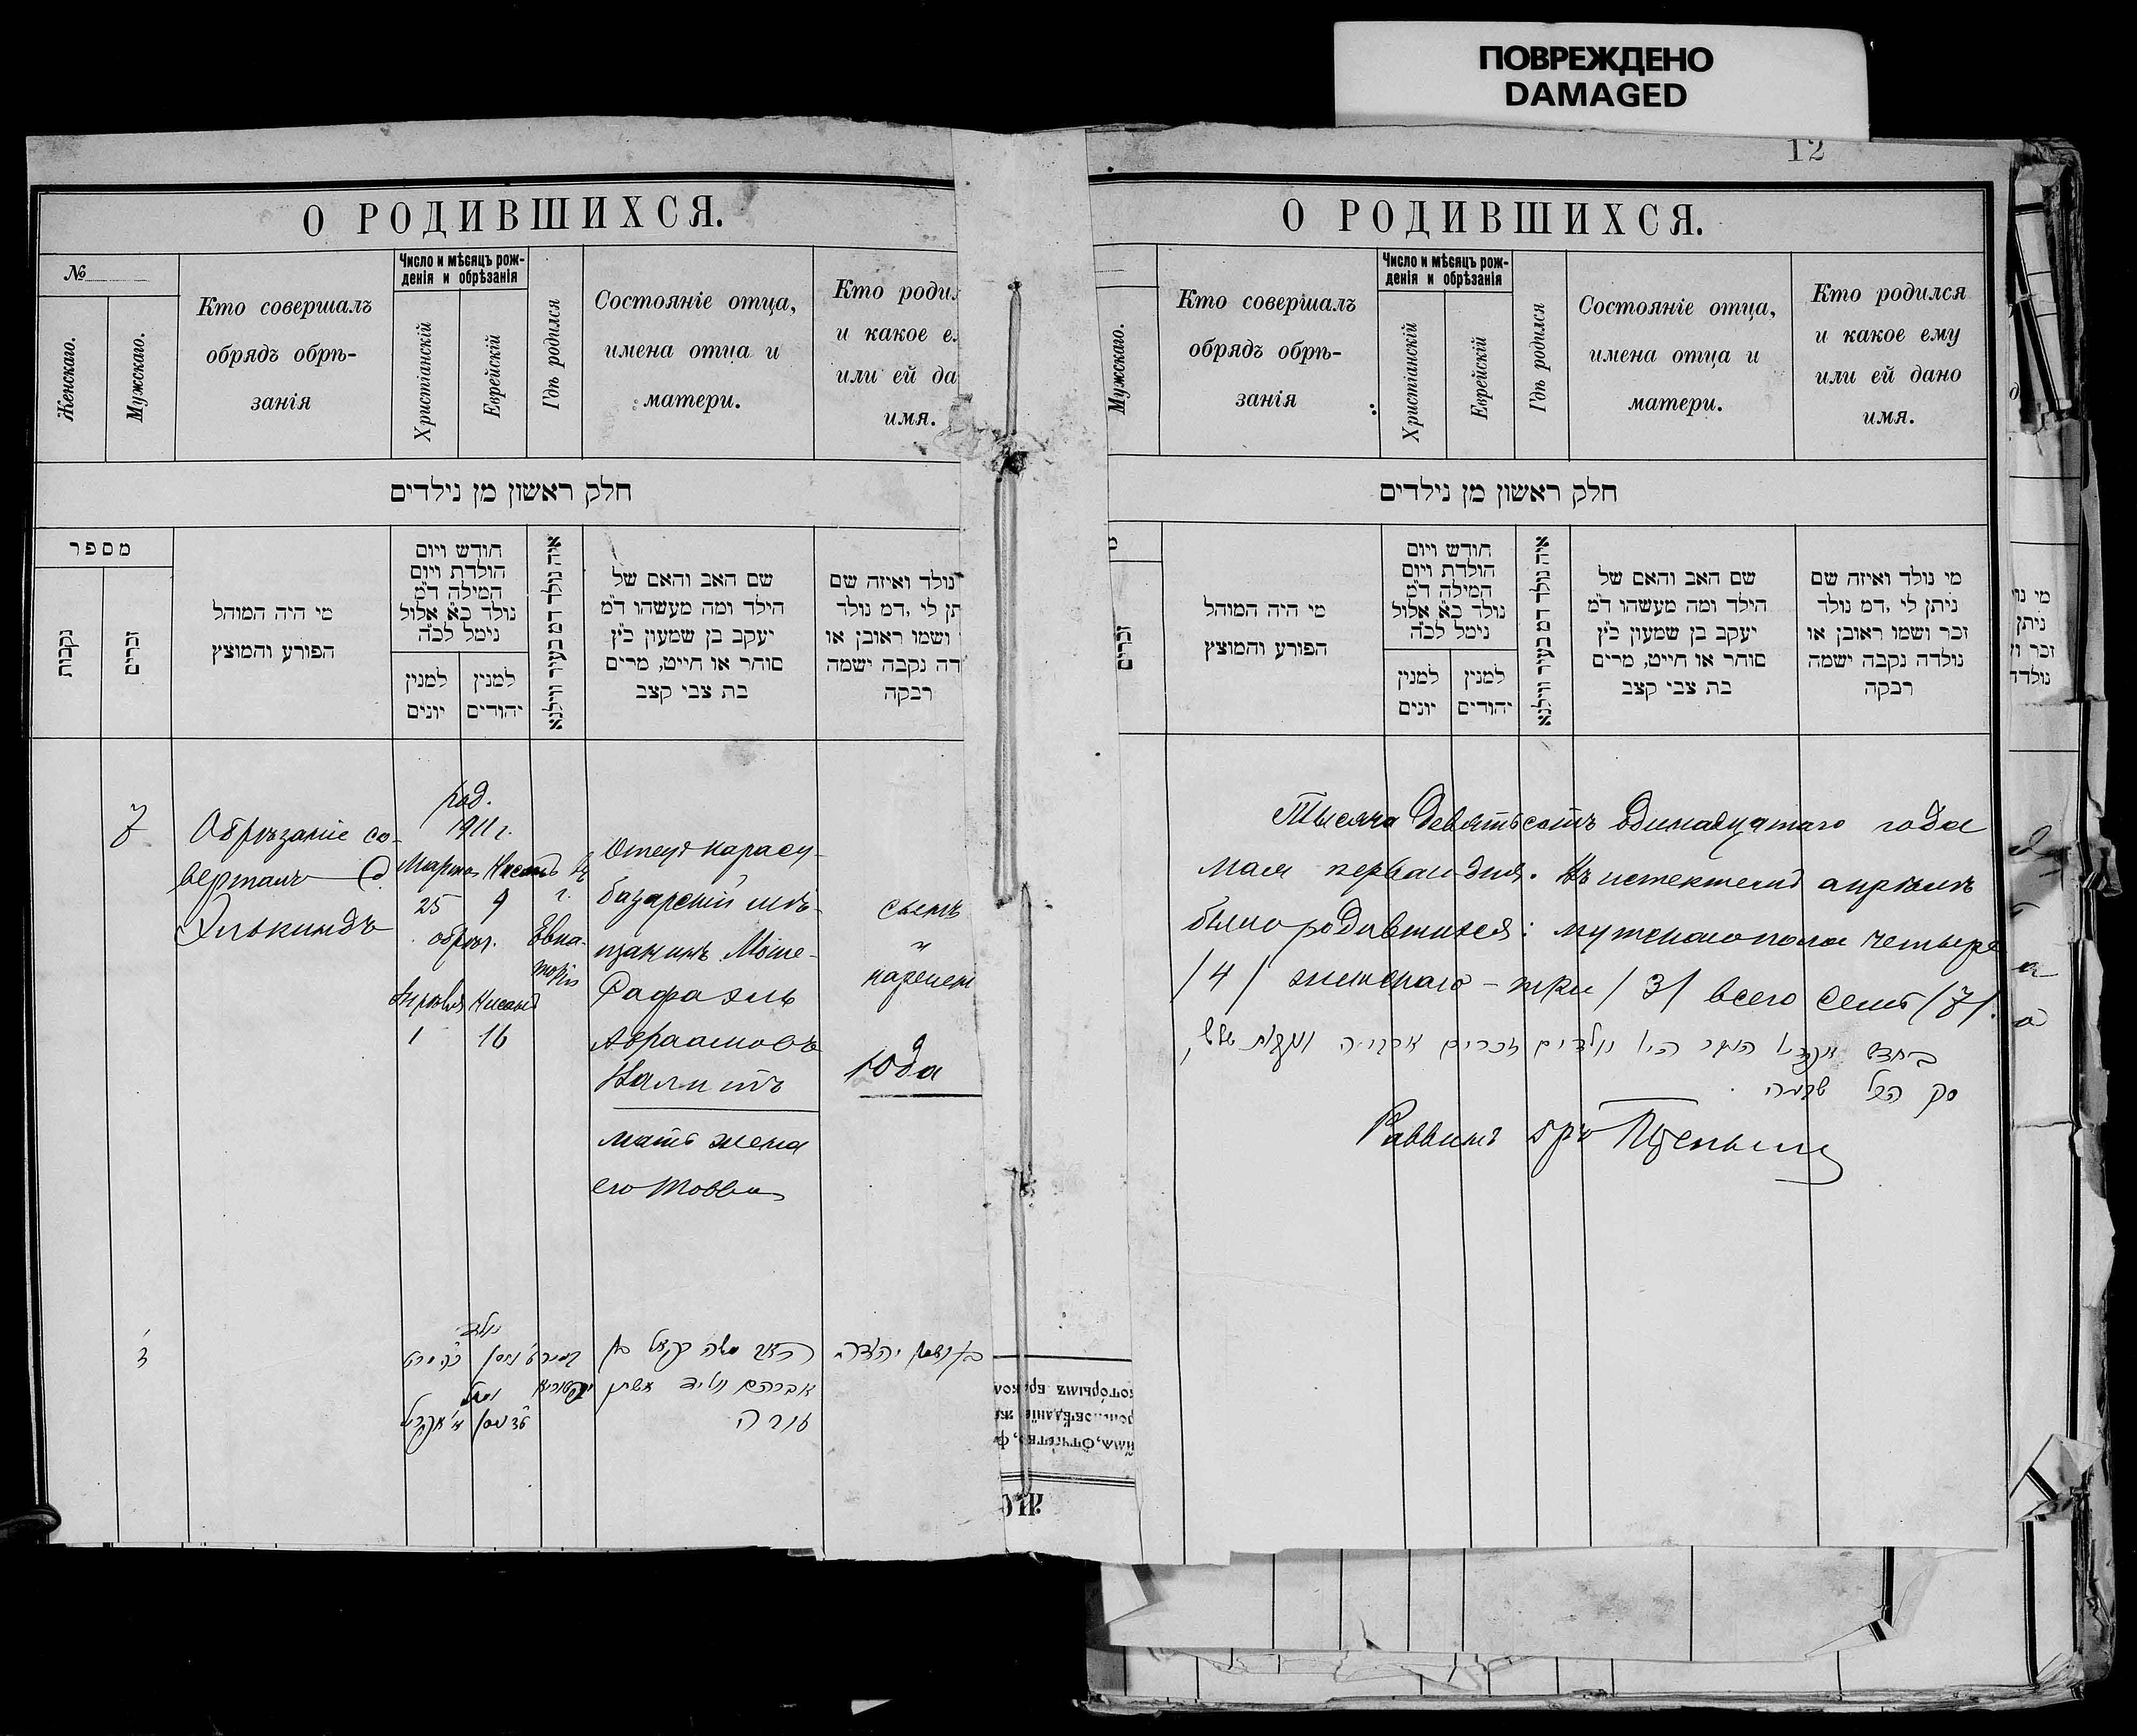 ПОВРЕЖДЕНО
DAMAGED
О РОДИВШИХСЯ.
№
Женскаго.
Мужскаго.
Кто совершалъ
обрядъ обрѣ-
занія
Число и мѣсяцъ рож-
денія и обрѣзанія
Христіанскій
Еврейскій
Гдѣ родился
Состояніе отца,
имена отца и
матери.
Кто роди
и какое е
или ей да
имя.
חלק ראשון מן נילדים
מספר
נקבות
זכרים
מי היה המוהל
הפורע והמוצץ
חודש ויום
הולדת ויום
המילה ד״מ
נולד כ״א אלול
נימל לכ״ה
למנין
יונים
למנין
יהודים
איה נולד דמ בעיר ווילנא
שם האב והאם של
הילד ומה מעשהו ד״מ
יעקב בן שמעון כ״ץ
סוחר או חייט, מרים
בת צבי קצב
נולד ואיזה שם
תן לי ,דמ נולד
ושמו ראובן או
דה נקבה ישמה
רבקה
7
Обрѣзаніе со-
вершалъ С
Элькиндъ
род.
1911 г.
Марта Нисанъ
25 9
обрѣз.
Апрѣля Нисанъ
1 16
г.
Евпа-
торія
Отецъ карасу-
базарскій мѣ-
щанинъ Моше-
Рафаэль
Авраамовъ
мать жена
его Товва
сынъ
"
нареченъ
Юда
נולד
אברהם
12
О РОДИВШИХСЯ.
Мужскаго.
Кто совершалъ
обрядъ обрѣ-
занія
Число и мѣсяцъ рож-
денія и обрѣзанія
Христіанскій
Еврейскій
Гдѣ родился
Состояніе отца,
имена отца и
матери.
Кто родился
и какое ему
или ей дано
имя.
חלק ראשון מן נילדים
זכרים
מי היה המוהל
הפורע והמוצץ
חודש ויום
הולדת ויום
המילה ד״מ
נולד כ״א אלול
נימל לכ״ה
למנין
יונים
למנין
יהודים
איה נולד דמ בעיר ווילנא
שם האב והאם של
הילד ומה מעשהו ד״מ
יעקב בן שמעון כ״ץ
סוחר או חייט, מרים
בת צבי קצב
מי נולד ואיזה שם
ניתן לי ,דמ נולד
זכר ושמו ראובן או
נולדה נקבה ישמה
רבקה
Тысяча девятьсотъ одинадцатаго года
мая перваго дня. Въ истекшемъ апрѣлѣ
было родившихся: мужскаго пола четыре
/4/ женскаго – три /3/ всего семь /7/.
סך הכל שבעה
Раввинъ